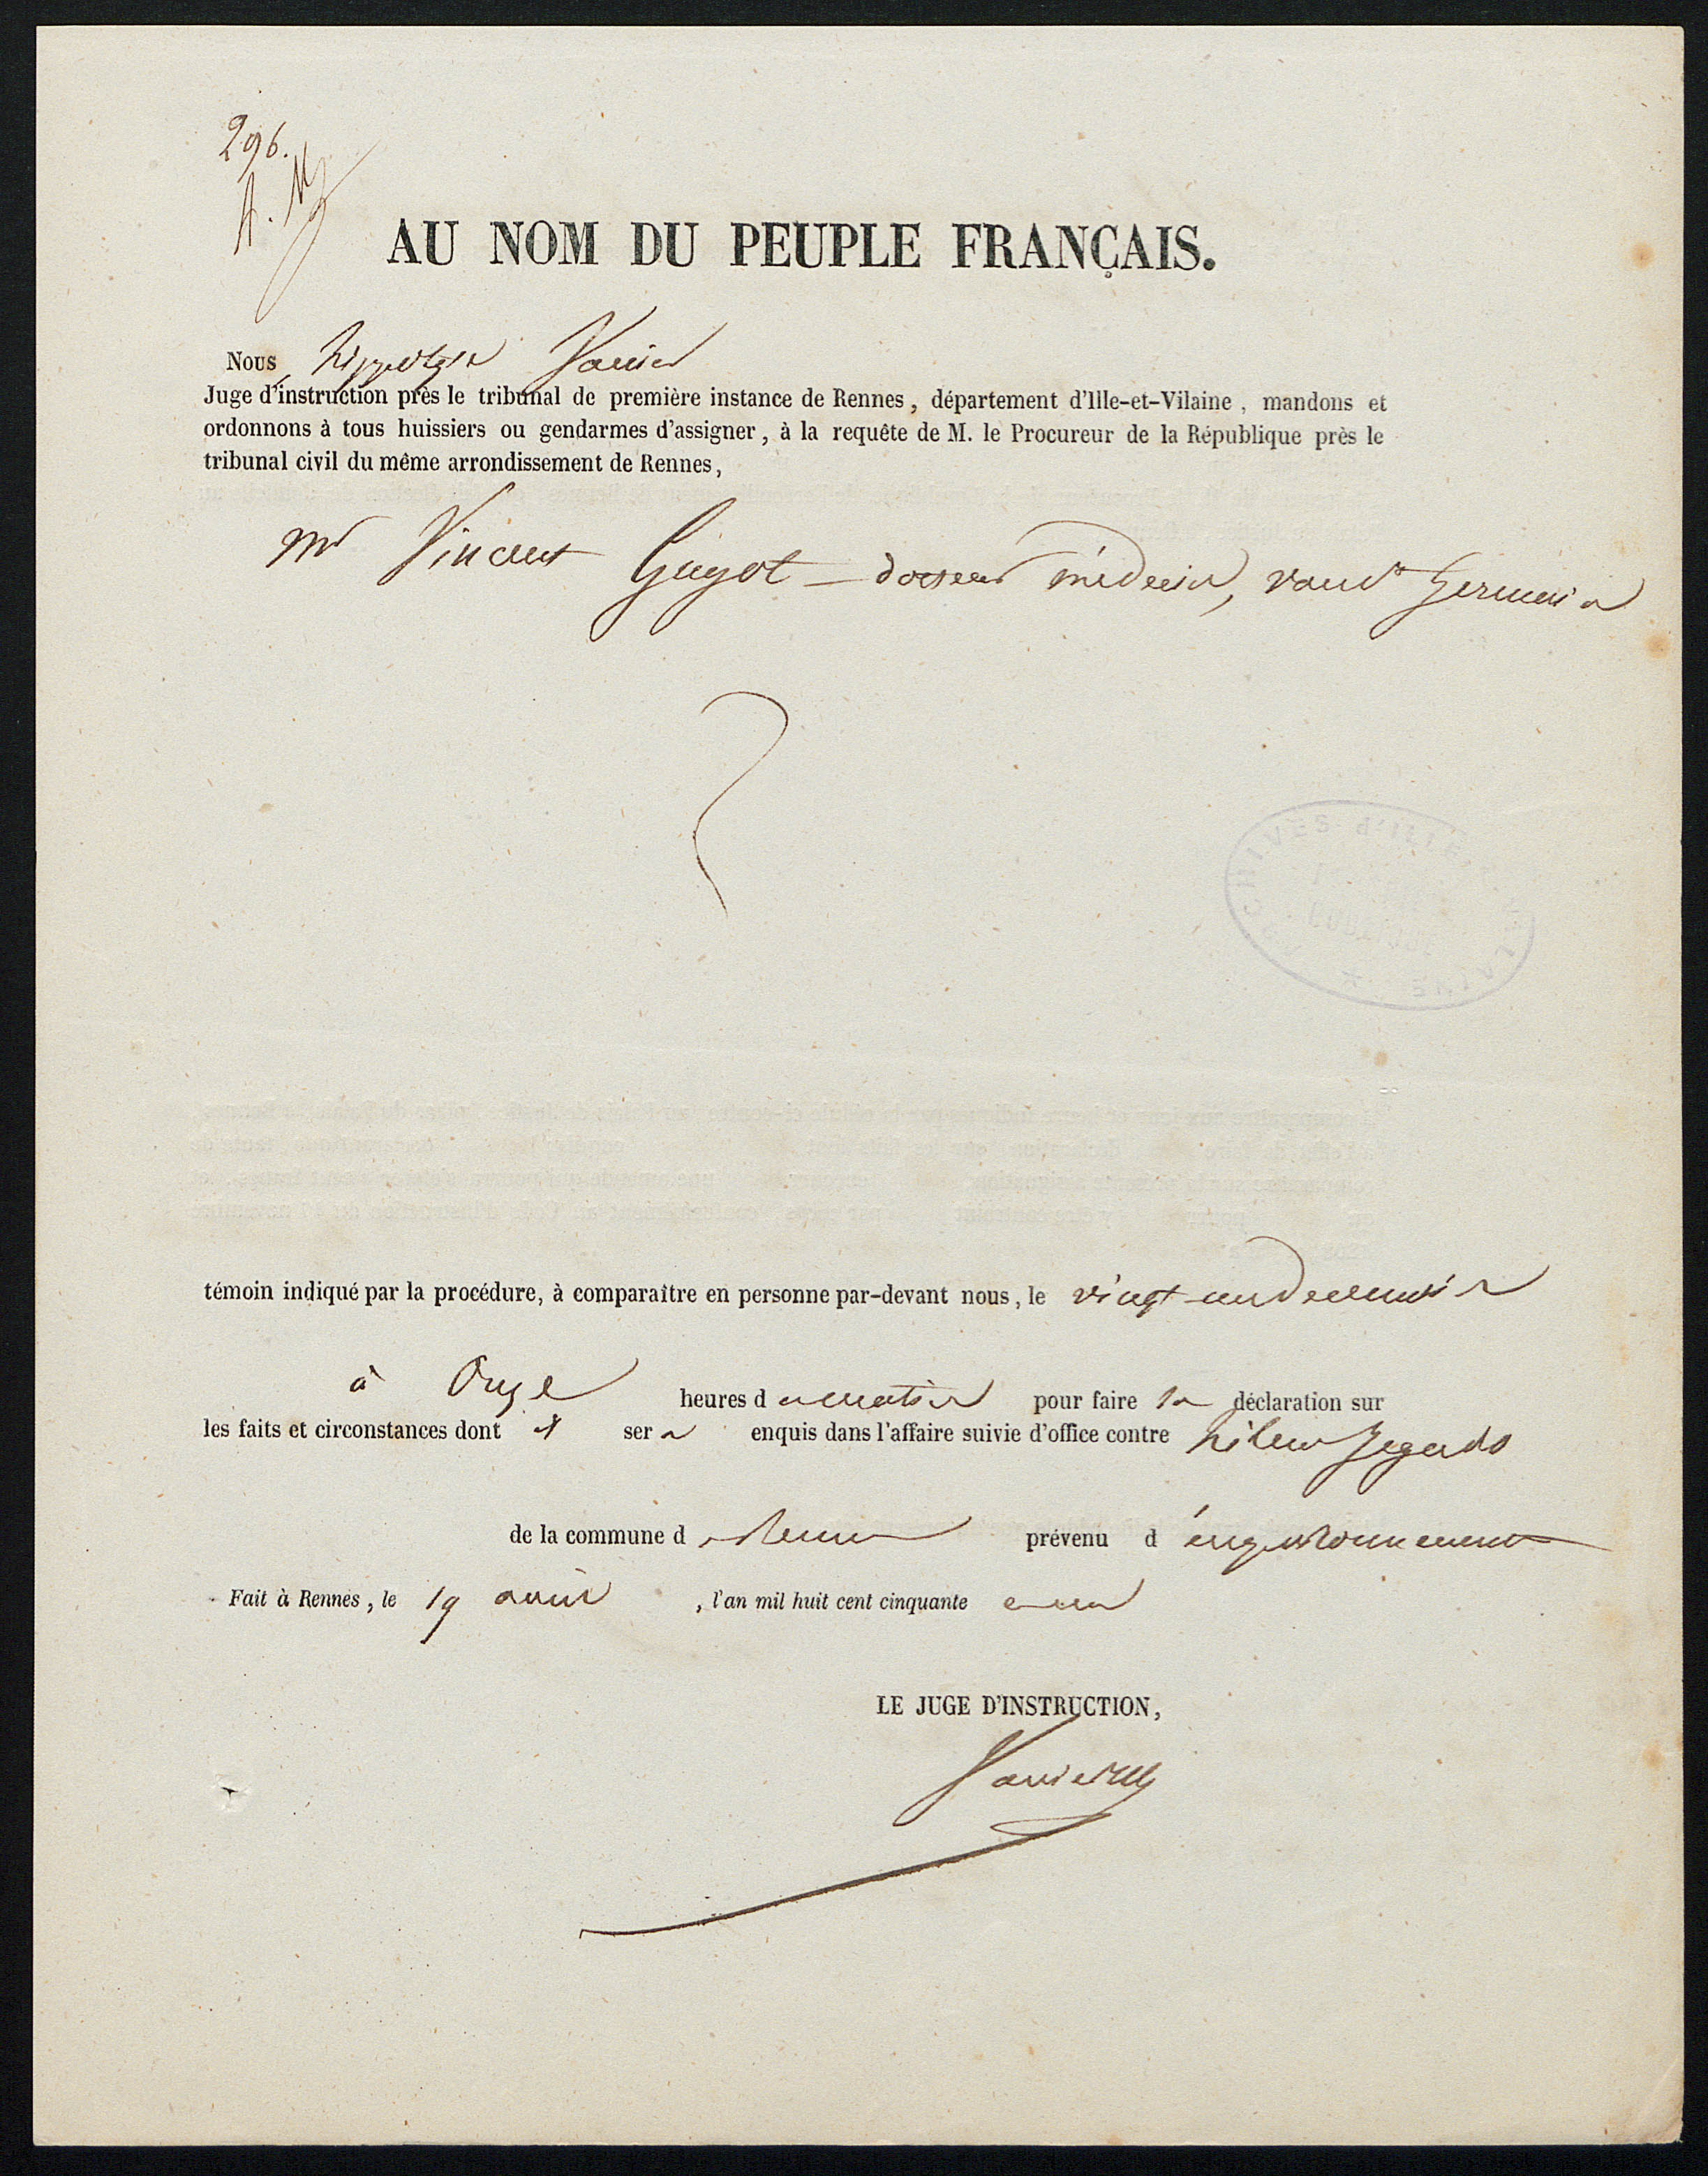 296.
A. M
AU NOM DU PEUPLE FRANÇAIS.
Nous, hippolyte Vannier
Juge d'instruction près le tribunal de première instance de Rennes, département d'Ille-et-Vilaine, mandons et
ordonnons à tous huissiers ou gendarmes d'assigner, à la requête de M. le Procureur de la République près le
tribunal civil du même arrondissement de Rennes,
Mr Vincent Guyot docteur médecin, rue St Germain
ARCHIVES d'ILLE-ET-VILAINE
témoin indiqué par la procédure, à comparaître en personne par-devant nous, le vingt
à Onze heures d u matin pour faire sa déclaration sur
les faits et circonstances dont il ser a enquis dans l'affaire suivie d'office contre hélène Jegado
de la commune d e Rennes prévenu d' empoisonnement
Fait à Rennes, le 19 août, l'an mil huit cent cinquante e un
LE JUGE D'INSTRUCTION,
Vannier